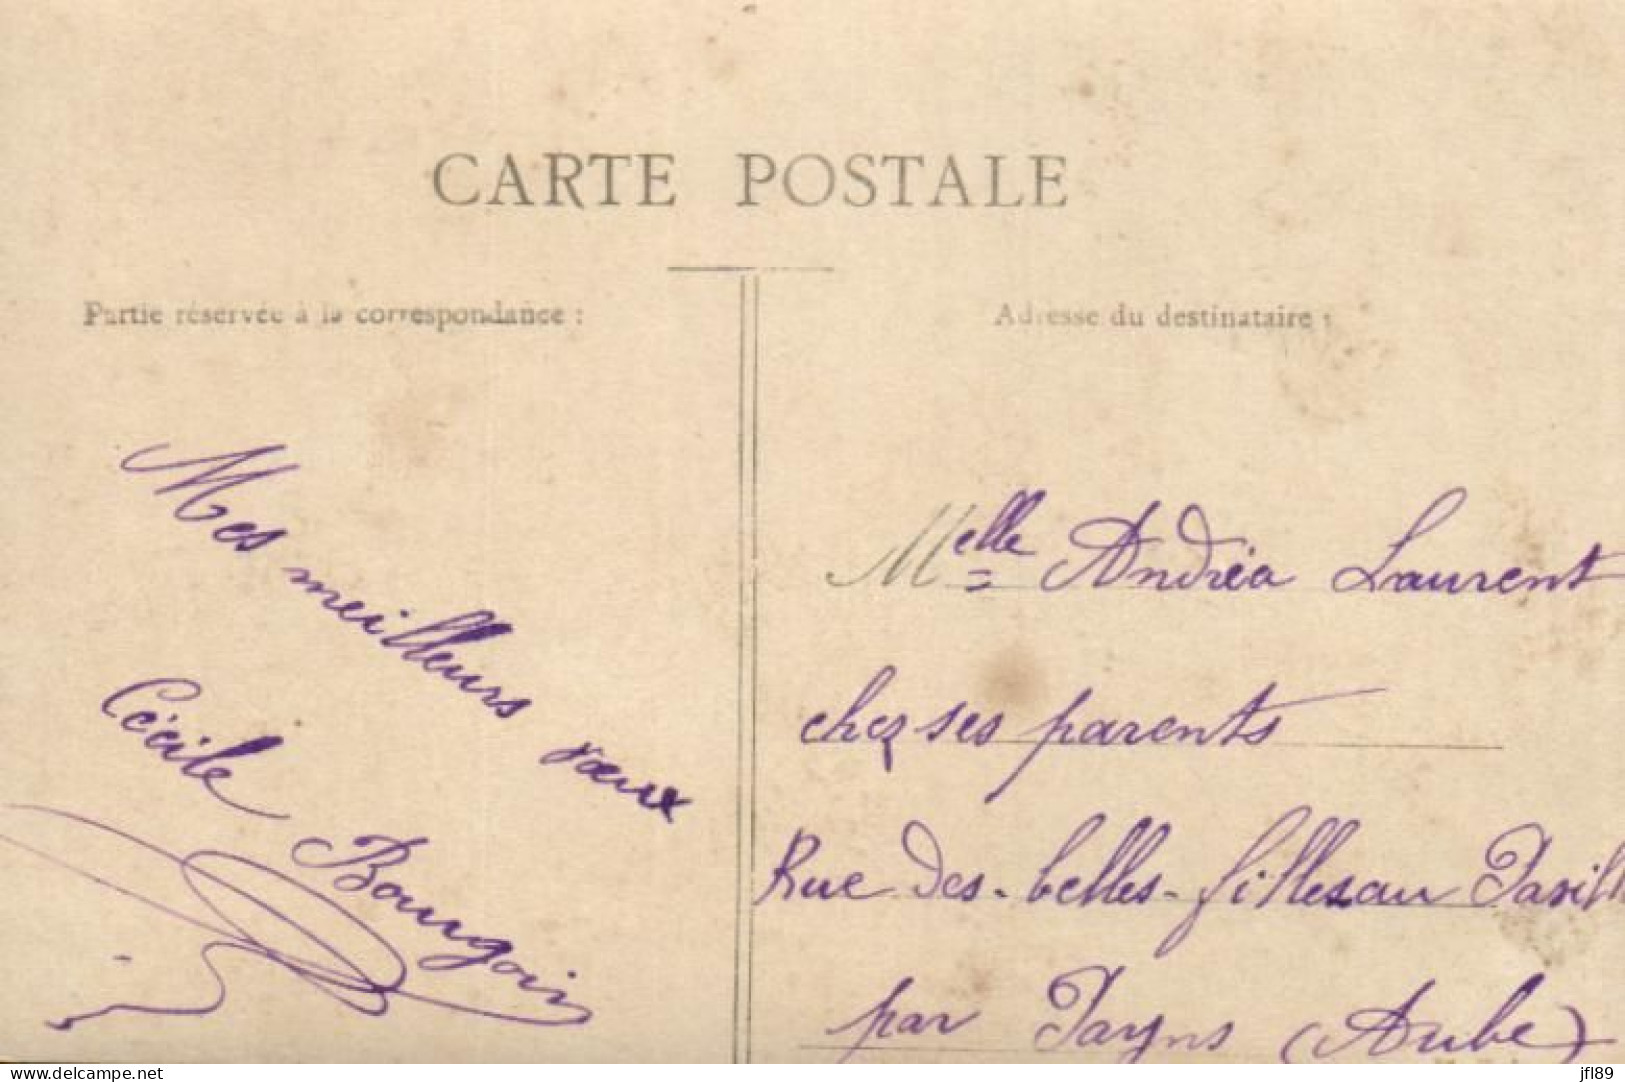 CARTE POSTALE
Partie réservée à la correspondance :
Adresse du destinataire :
Mes meilleurs vœux
Cécile Bourgoin
Melle Andréa Laurent
chez ses parents
Rue des-belles-filles au Pavill
par Payns (Aube)
delcampe.net
jfl89